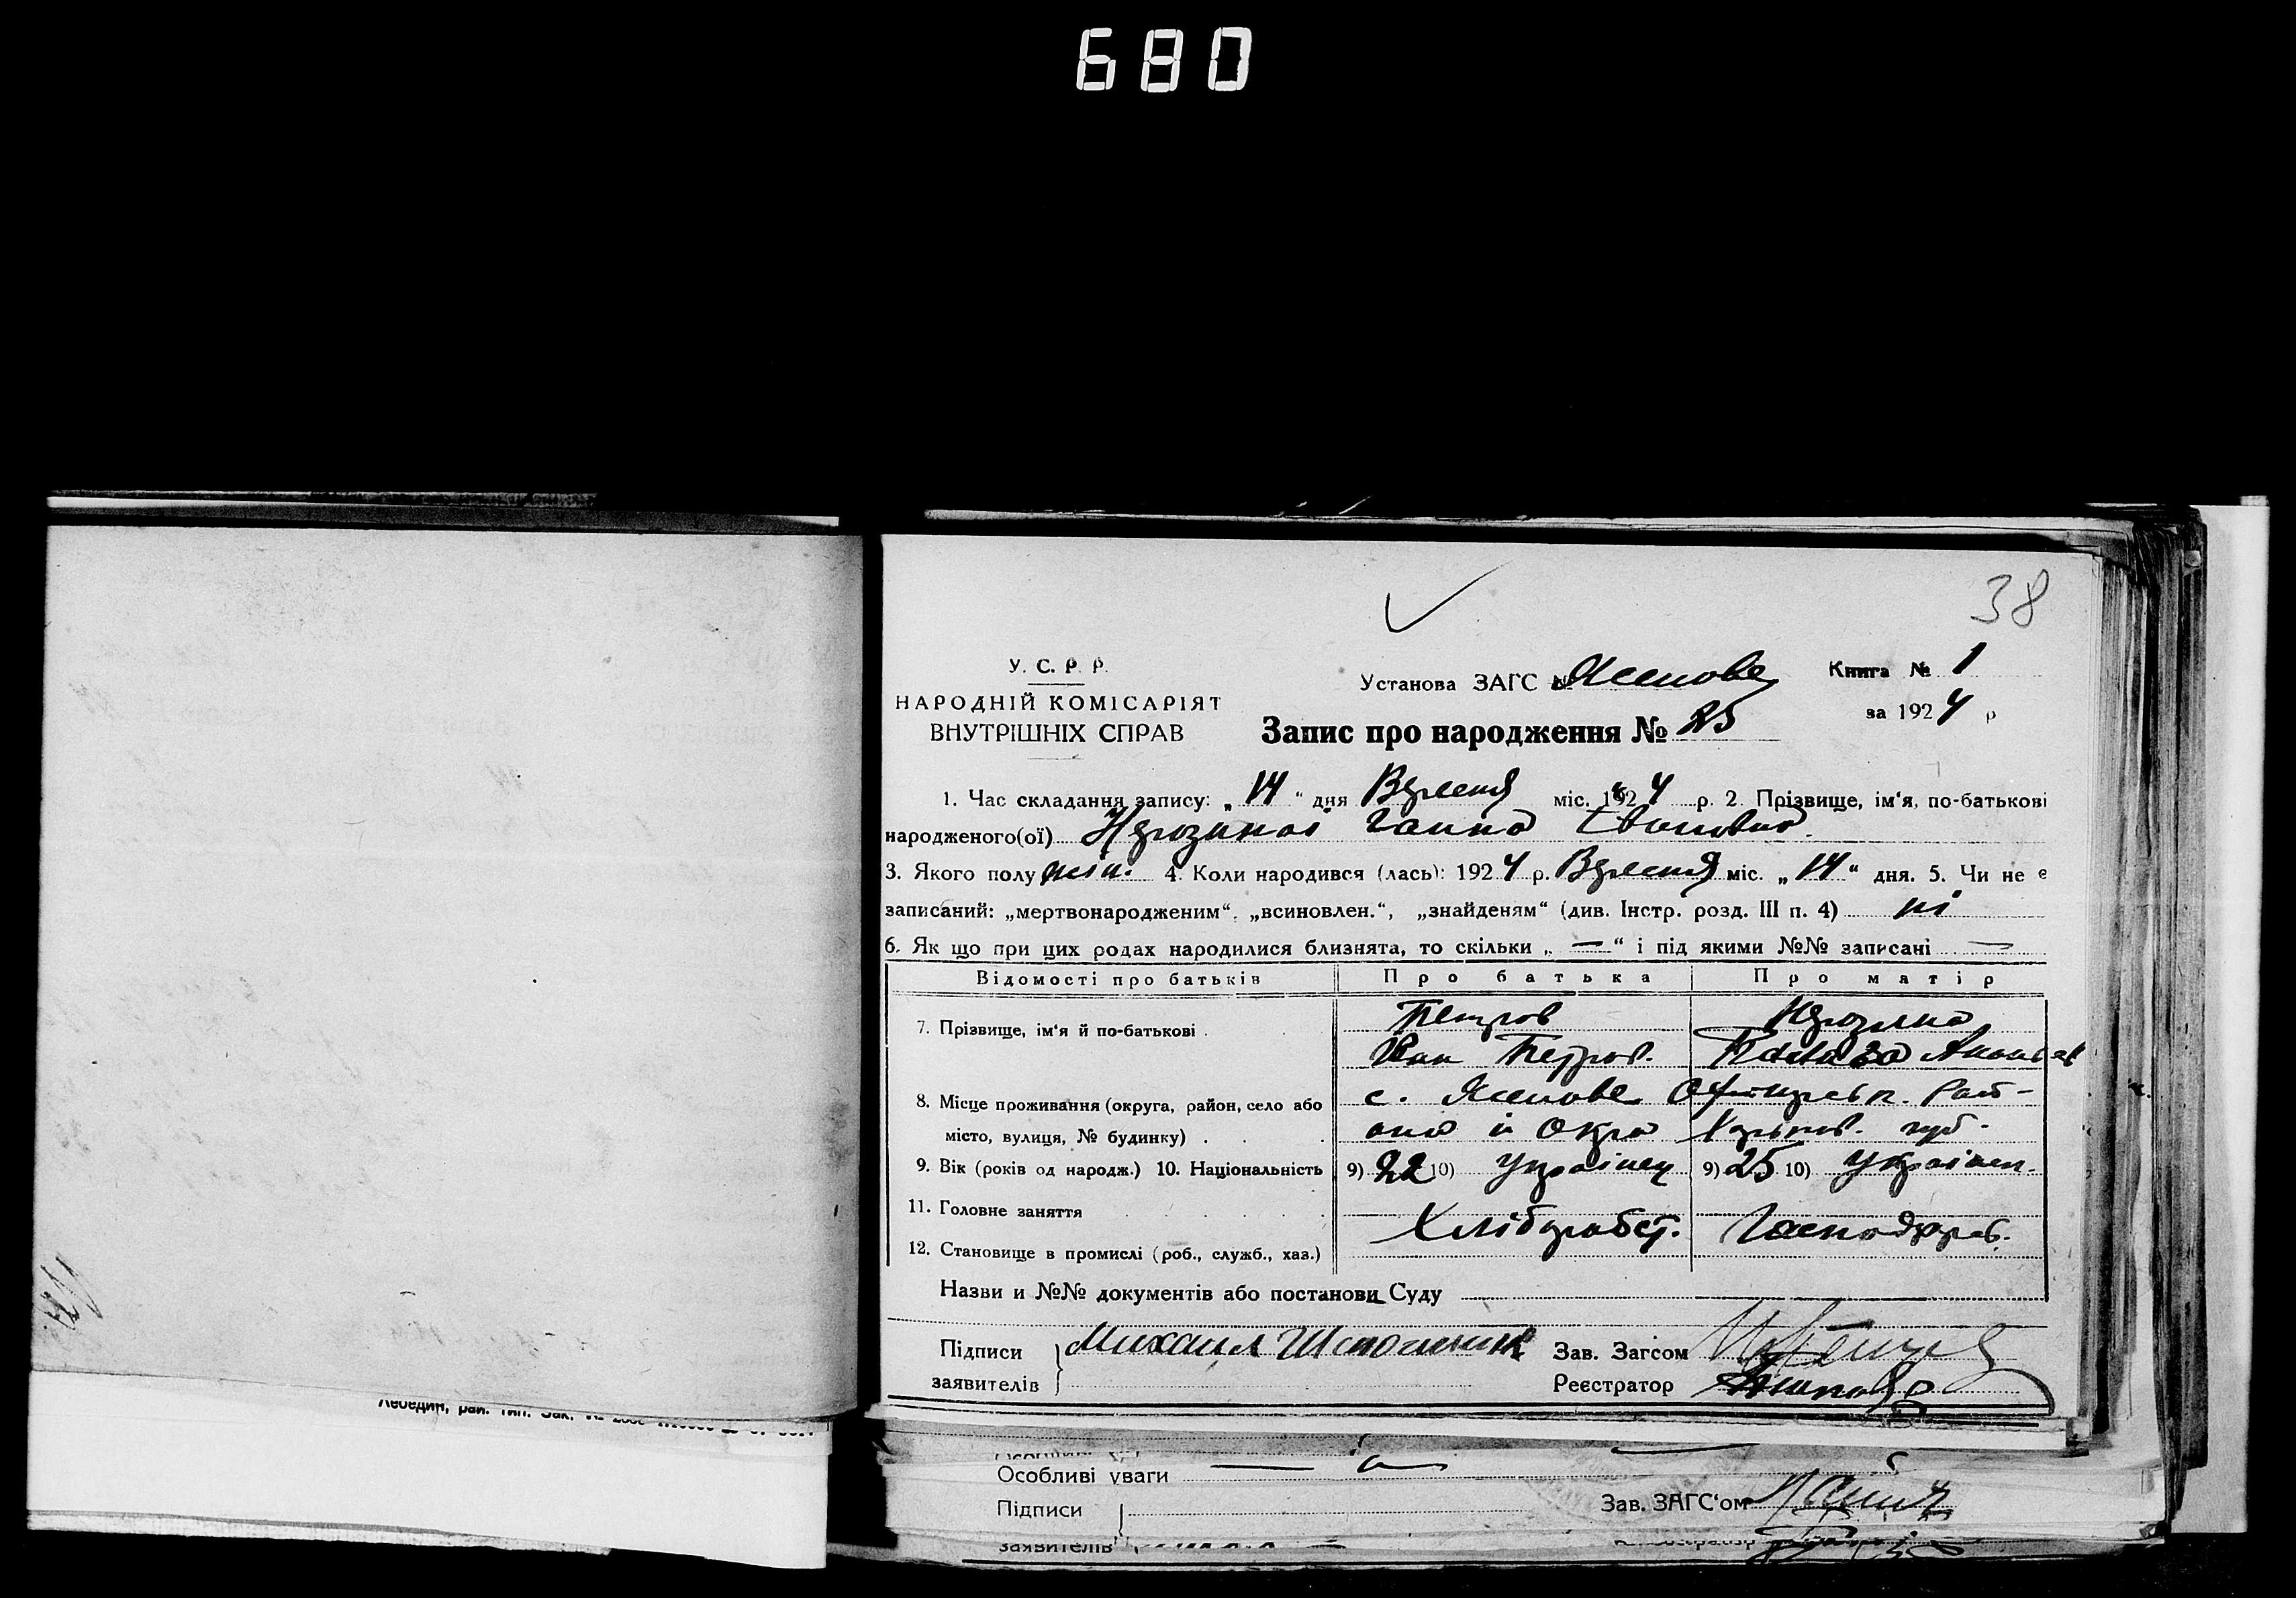 680
38
У. С. Р. Р.
Установа ЗАГС № Ясенове Книга № 1
НАРОДНІЙ КОМІСАРІЯТ
за 1924 р
ВНУТРІШНІХ СПРАВ
Запис про народження № 25
1. Час складання запису: „14“ дня Вересня міс. 1924 р. 2. Прізвище, ім‘я, по-батькові
народженого(ої) Ганна Івановна
3. Якого полу жін. 4. Коли народився (лась): 1924 р. Вересня міс. „14“ дня. 5. Чи не є
записаний: „мертвонародженим“, „всиновлен.“, „знайденям“ (див. Інстр. розд. III п. 4) ні
6. Як що при цих родах народилися близнята, то скільки „ — “ і під якими №№ записані —
Відомості про батьків Про батька Про матір
7. Прізвище, ім‘я й по-батькові . Петров
Иван Петров.
8. Місце проживання (округа, район, село або с. Ясенове Охтирськ. Рай-
місто, вулиця, № будинку) . . . она и Окра Харьков. губ.
9. Вік (років од народж.) 10. Національність 9) 22 10) Українец 9) 25 10) Українск.
11. Головне заняття
Хліборобст.
12. Становище в промислі (роб., служб., хаз.)
Назви и №№ документів або постанови Суду
Підписи Михаил Зав. Загсом
заявителів Реєстратор
Лебедин, рай. тип. Зак.
Особливі уваги
Підписи Зав. ЗАГС‘ом
заявителів